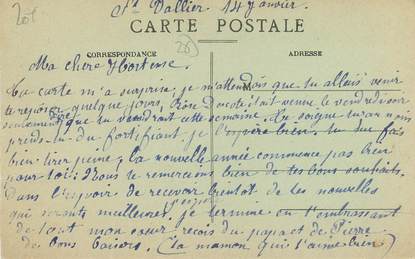 201
St Vallier 14 Janvier.
CARTE POSTALE
(28)
CORRESPONDANCE
ADRESSE
Ma chere Hortense.
Ta carte m'a surprise, je m'attendois que tu allais venir
te reposer quelque jours, Rose était venue le vendredi soir
seulement dire que tu viendrait cette semaine.
prends-tu du fortifiant, je l'espère bien. tu
bien la nouvelle année commence pas bien
pour toi: Nous te remercions bien de tes bons souhaits.
Dans l'espoir de recevoir bientot de tes nouvelles
qui seront meilleures, j'espère je termine en t'embrassant
de tout mon cœur reçois du papa et de Pierre
de bons baisers. (ta maman qui t'aime bien)